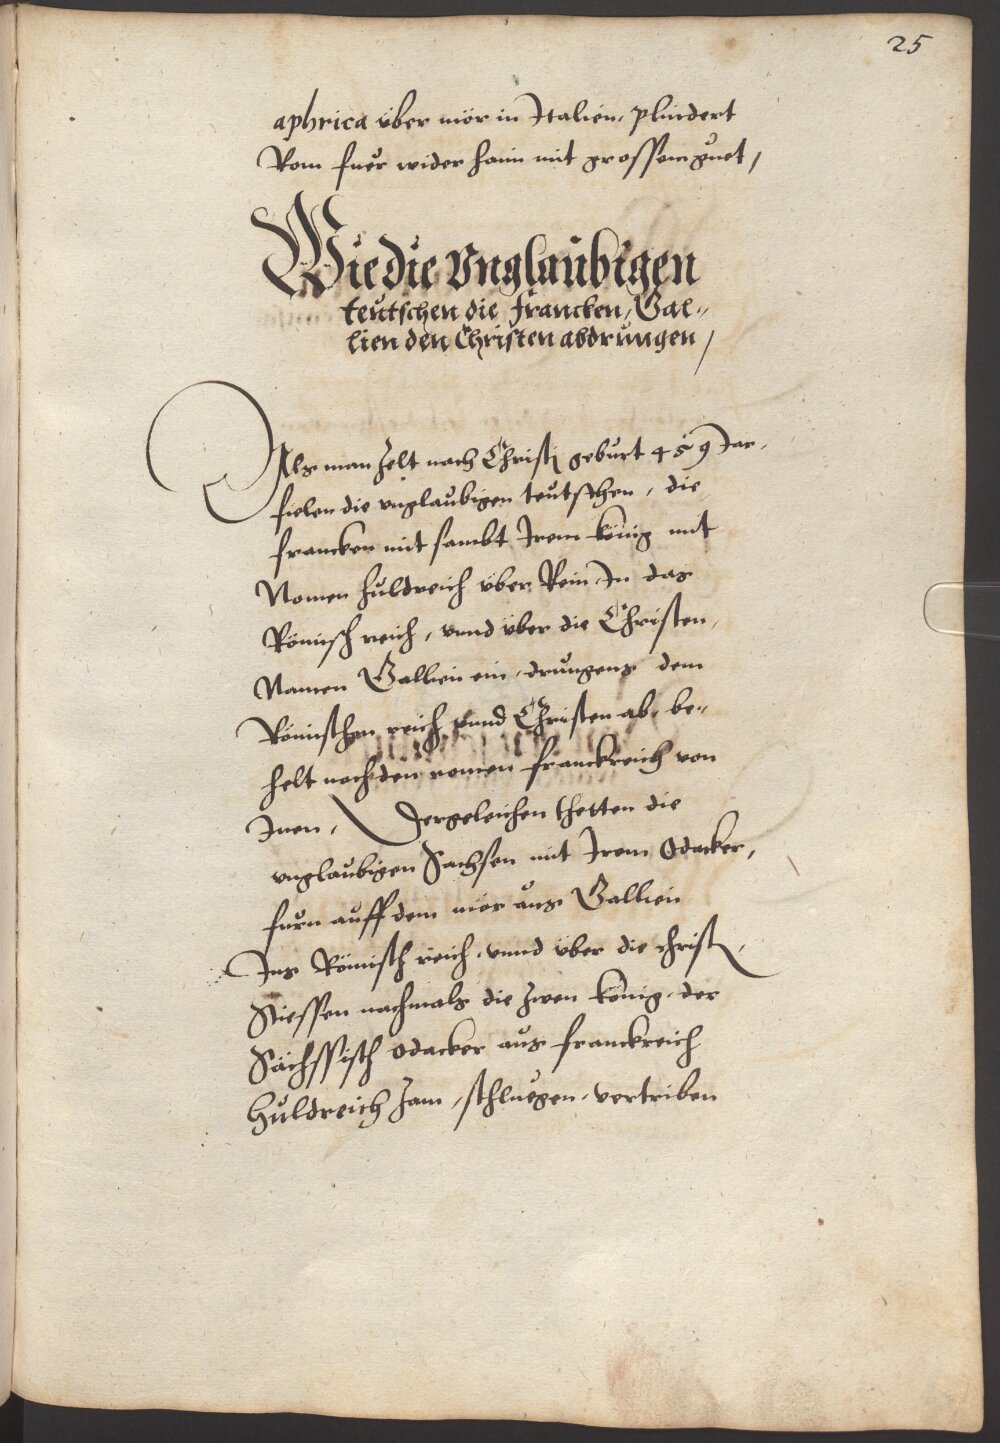 25
aphrica über mör in Italien, plündert
Rom fuer wider haim mit grossem guet,
Wie die Unglaübigen
teütschen die francken, Gal=
lien den Christen abdrüngen,
Als man zelt nach Christi gebürt 459 Jar,
fielen die unglaübigen teütschen, die
francken mit sambt Irem künig mit
Nomen hüldreich über Rein In das
Römisch reich, unnd über die Christen,
Namen Gallien ein, drüngens dem
Römischen reich unnd Christen ab, be=
helt noch den nomen franckreich von
Inen, Dergeleichen thetten die
unglaübigen Sachsen mit Irem Odacker,
fürn auff dem mör aüs Gallien
Ins Römisch reich, unnd über die christ,
Stiessen nachmals die zwen künig, der
Sächssisch Odacker aüs franckreich
hüldreich zam, schluegen, vertriben